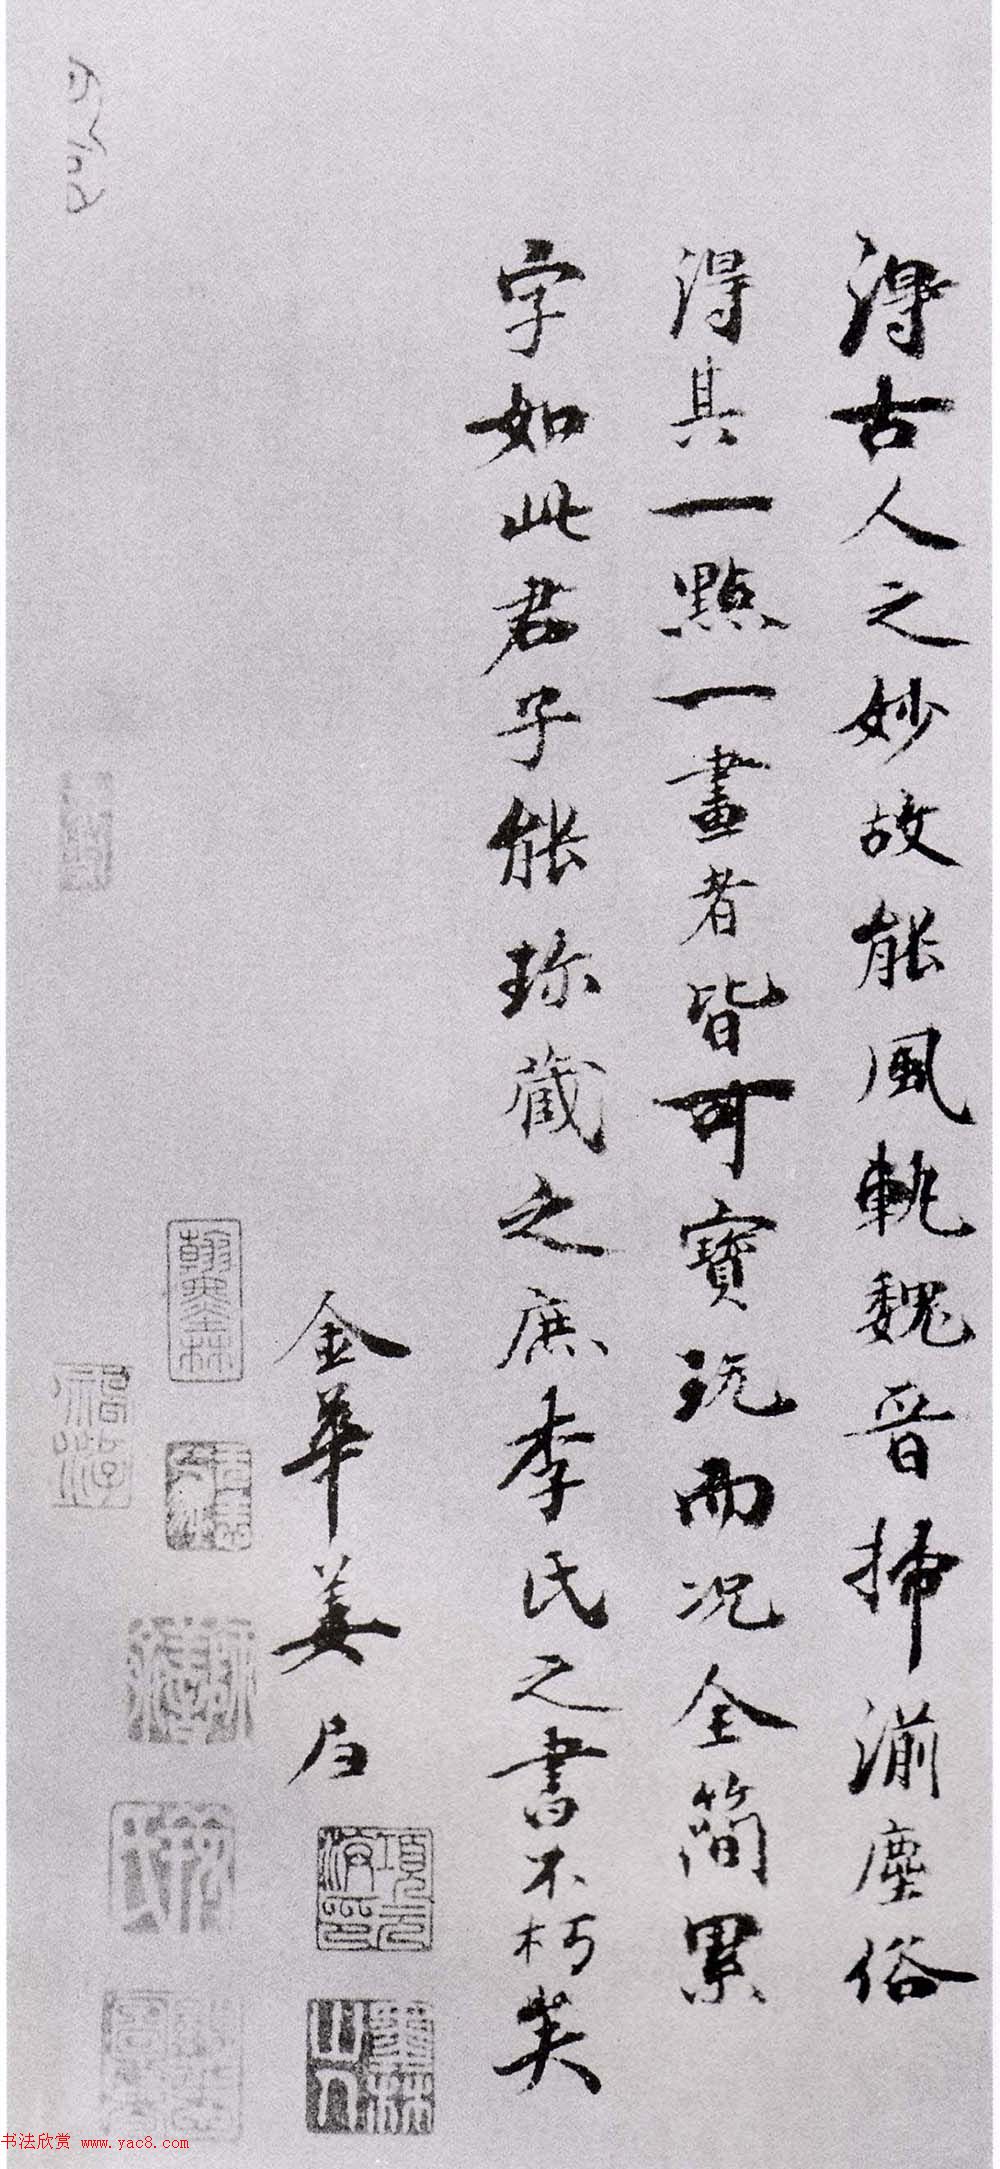 得古人之妙故能風軌魏晉掃湔塵俗
得其一點一畫者皆可寶玩而況全簡累
字如此君子能珎藏之庶李氏之書不朽矣
金華姜
項元汴印
墨林山人
翰墨林
书法欣赏 www.yac8.com